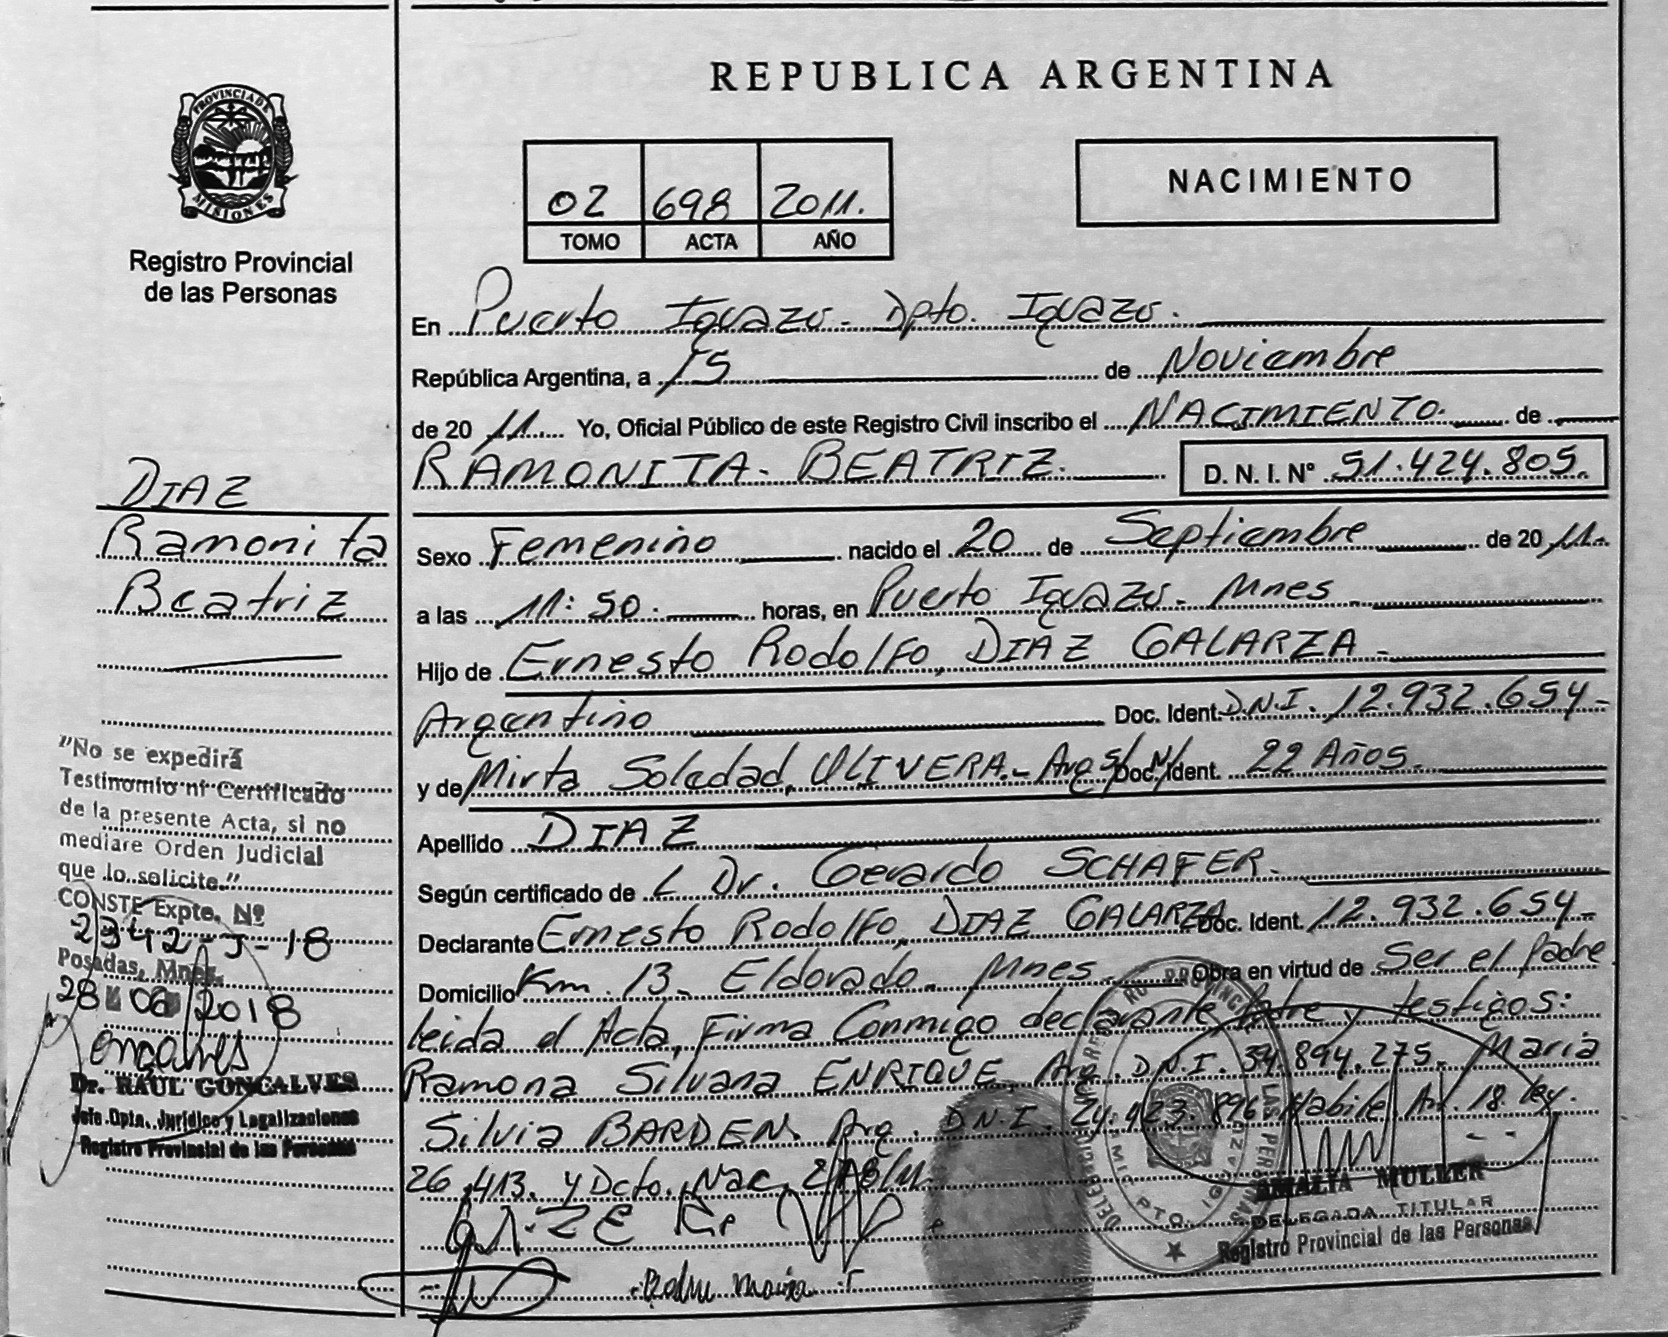 PROVINCIA DE
MISIONES
Registro Provincial
de las Personas
REPUBLICA ARGENTINA
02 698 2011.
TOMO ACTA AÑO
NACIMIENTO
En Puerto Iguazu - Dpto. Iguazu.
República Argentina, a 15 de Noviembre
de 20 11 Yo, Oficial Público de este Registro Civil inscribo el NACIMIENTO. de
RAMONITA - BEATRIZ. D. N. I. Nº 51.424.805.
Sexo Femenino nacido el 20 de Septiembre de 20 11.
a las 11:50. horas, en Puerto Iguazu - Mnes
Hijo de Ernesto Rodolfo, DIAZ GALARZA -
Argentino Doc. Ident. D.N.I. 12.932.654-
y de Mirta Soledad, OLIVERA - Arg S/N/ Doc. Ident. 22 Años.
Apellido DIAZ
Según certificado de L Dr. Gerardo SCHAFER.
Declarante Ernesto Rodolfo, DIAZ GALARZA Doc. Ident. 12.932.654-
Domicilio Km. 13 - Eldorado - Mnes. Obra en virtud de Ser el padre
leida el Acta, Firma Conmigo declarante padre y testigos:
Ramona Silvana ENRIQUE, Arg. D.N.I. 34.894.275. Maria
Silvia BARDEN Arg. D.N.I. 24.423.896 Habile Art. 18 ley.
26.413. y Dcto. Nac. 278/11
DIAZ
Ramonita
Beatriz
"No se expedirá
Testimonio ni Certificado
de la presente Acta, si no
mediare Orden Judicial
que lo solicite."
CONSTE Expte. Nº
2342-J-18
Posadas, Mnes.
28 06 2018
Dr. RAUL GONCALVES
Jefe Dpto. Jurídico y Legalizaciones
Registro Provincial de las Personas
AMALIA MULLER
DELEGADA TITULAR
Registro Provincial de las Personas